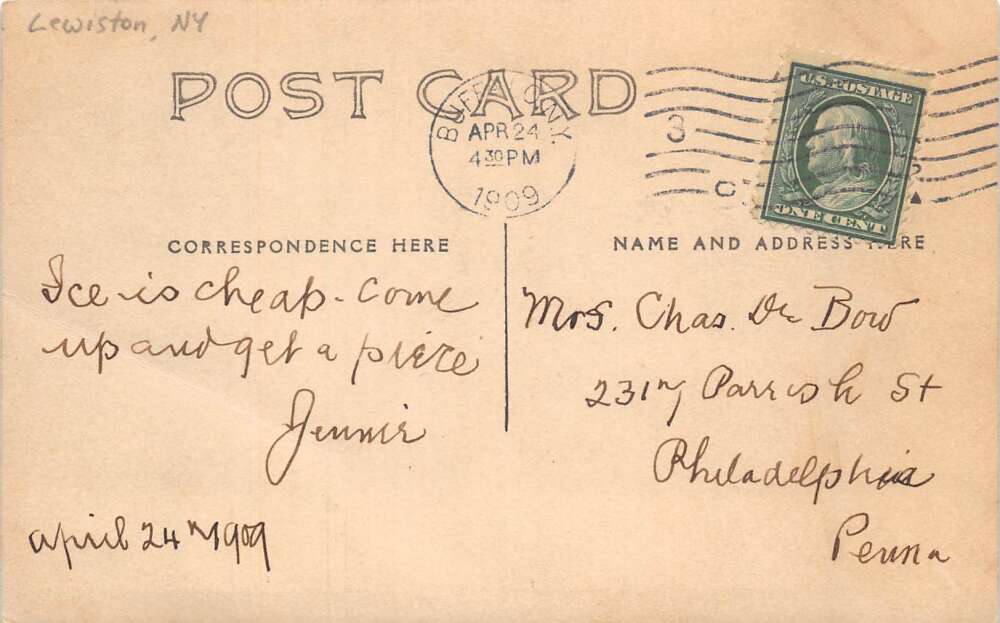 Lewiston, NY
POST CARD
BUFFALO, N.Y.
APR 24
4 30 PM
1909
3
U.S. POSTAGE
ONE CENT
CORRESPONDENCE HERE
NAME AND ADDRESS HERE
Ice is cheap - Come
up and get a piece
Jennie
april 24th 1909
Mrs. Chas. De Bow
2317 Parrish St
Philadelphia
Penna